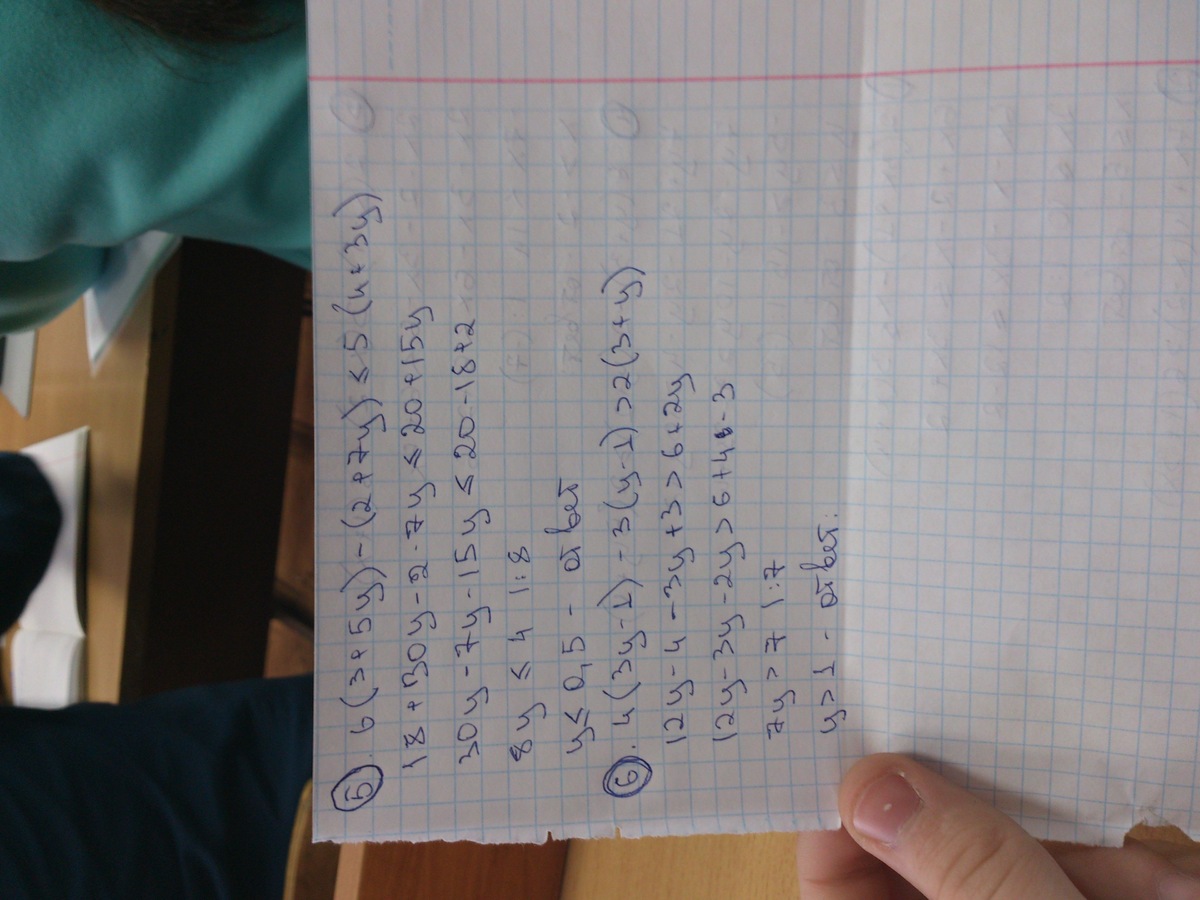 5. 6(3+5y)-(2+7y)≤5(4+3y)
18+30y-2-7y≤20+15y
30y-7y-15y≤20-18+2
8y≤4 |:8
y≤0,5 - ответ
6. 4(3y-1)-3(y-1)>2(3+y)
12y-4-3y+3>6+2y
12y-3y-2y>6+4-3
7y>7 |:7
y>1 - ответ.